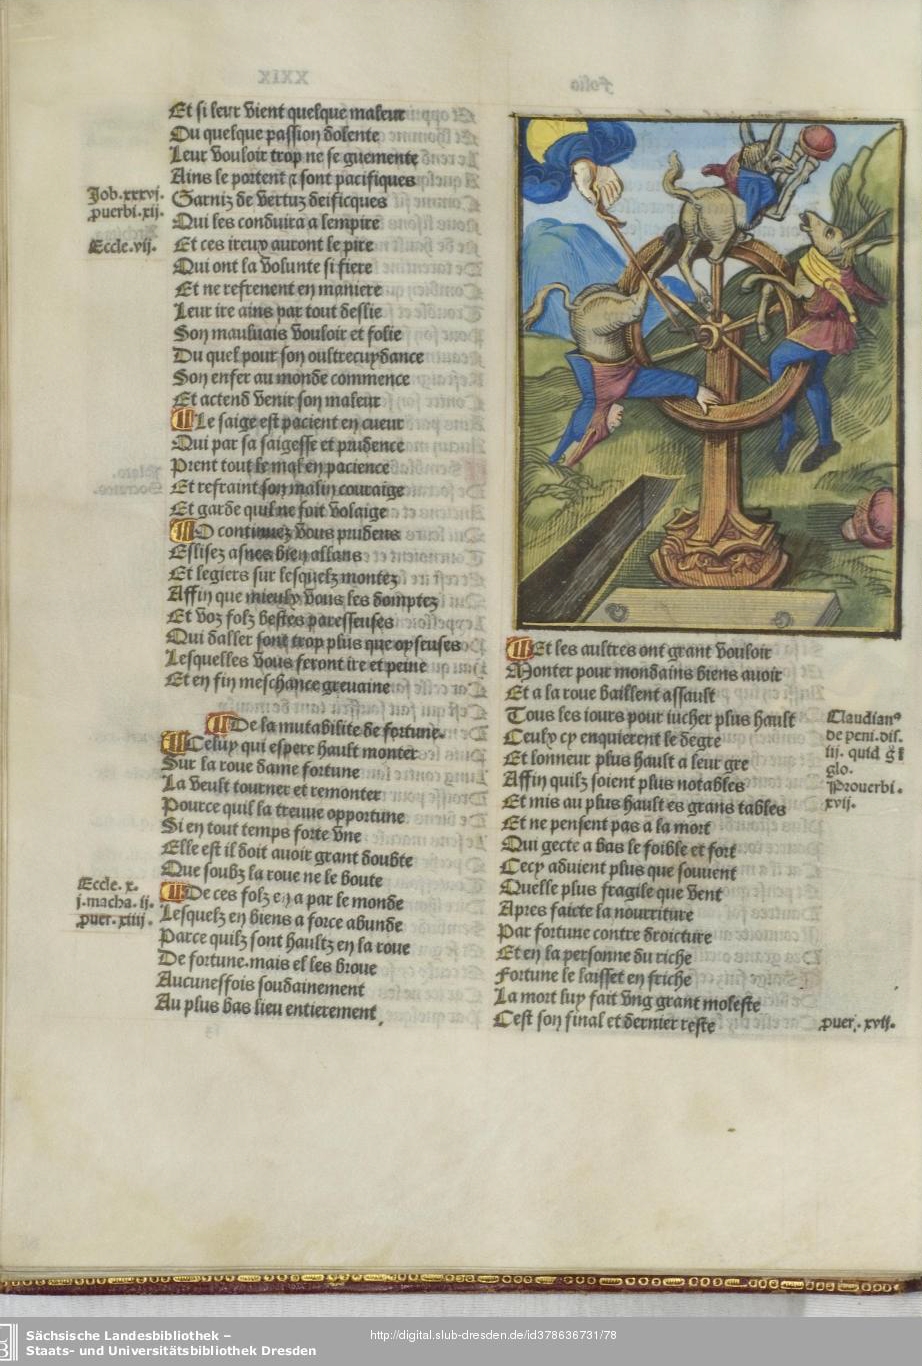 Et si leur vient quelque maleur
Ou quelque passion dolente
Leur vouloir trop ne se guemente
Ains le portent et sont pacifiques
Job. xxxvi.
Garniz de vertuz deificques
puerbi. xij.
Qui les conduira a lempire
Eccle. vij.
Et ces ireux auront le pire
Qui ont la volunte si fiere
Et ne refrenent en maniere
Leur ire ains par tout deslie
Son mauluais vouloir et folie
Du quel pour son oultrecuydance
Son enfer au monde commence
Et actend venir son maleur
Le saige est pacient en cueur
Qui par sa saigesse et prudence
Prent tout le mal en pacience
Et refraint son malin couraige
Et garde quil ne soit volaige
O continuez vous prudens
Eslisez asnes bien allans
Et legiers sur lesquelz montez
Affin que mieulx vous les domptez
Et voz folz bestes paresseuses
Qui daller sont trop plus que oyseuses
Lesquelles vous feront ire et peine
Et en fin meschance greuaine
De la mutabilite de fortune.
Celuy qui espere hault monter
Sur la roue dame fortune
La veult tourner et remonter
Pource quil la treuue opportune
Si en tout temps forte vne
Elle est il doit auoir grant doubte
Que soubz la roue ne le boute
Eccle. x.
De ces folz en a par le monde
j. macha. ij.
Lesquelz en biens a force abunde
puer. xiiij.
Parce quilz sont haultz en la roue
De fortune. mais el les broue
Aucunesfois soudainement
Au plus bas lieu entierement.
Et les aultres ont grant vouloir
Monter pour mondains biens auoir
Et a la roue baillent assault
Tous les iours pour iucher plus hault
Ceulx cy enquierent le degre
Et lonneur plus hault a leur gre
Affin quilz soient plus notables
Et mis au plus hault es grans tables
Claudianꝰ
de peni. dis.
iij. quid
glo.
Prouerbi.
xvij.
Et ne pensent pas a la mort
Qui gecte a bas le foible et fort
Cecy aduient plus que souuent
Quelle plus fragile que vent
Apres faicte la nourriture
Par fortune contre droicture
Et en la personne du riche
Fortune le laisset en friche
La mort luy fait vng grant moleste
Cest son final et dernier reste
puer. xvij.
Sächsische Landesbibliothek –
Staats- und Universitätsbibliothek Dresden
http://digital.slub-dresden.de/id378636731/78